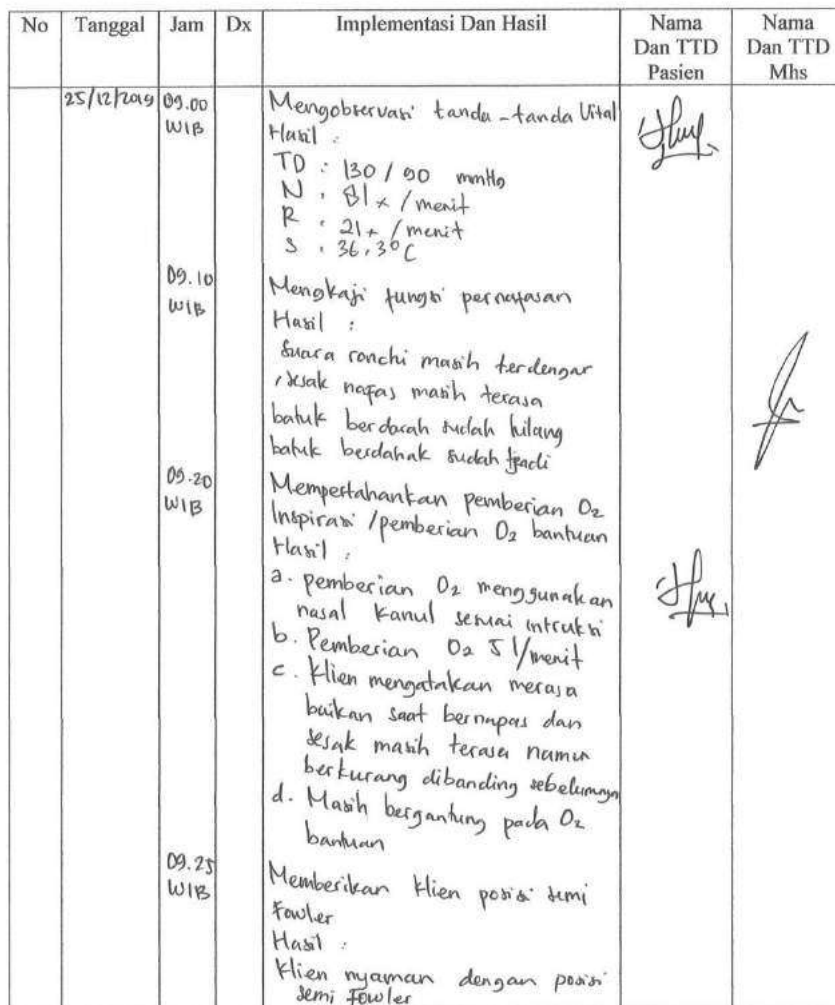 No Tanggal Jam Dx Implementasi Dan Hasil Nama Dan TTD Pasien Nama Dan TTD Mhs
25/12/2019 09.00 WIB Mengobservasi tanda-tanda Vital
Hasil :
TD : 130 / 90 mmHg
N : 81 x / menit
R : 21 x / menit
S : 36,3°C
09.10 WIB Mengkaji fungsi pernafasan
Hasil :
Suara ronchi masih terdengar
, sesak nafas masih terasa
batuk berdarah sudah hilang
batuk berdahak sudah
09.20 WIB Mempertahankan pemberian O2
Inspirasi / pemberian O2 bantuan
Hasil :
a. pemberian O2 menggunakan
nasal kanul sesuai intruksi
b. Pemberian O2 5 l/menit
c. Klien mengatakan merasa
baikan saat bernapas dan
sesak masih terasa namun
berkurang dibanding sebelumnya
d. Masih bergantung pada O2
bantuan
09.25 WIB Memberikan klien posisi semi
Fowler
Hasil :
Klien nyaman dengan posisi
semi Fowler